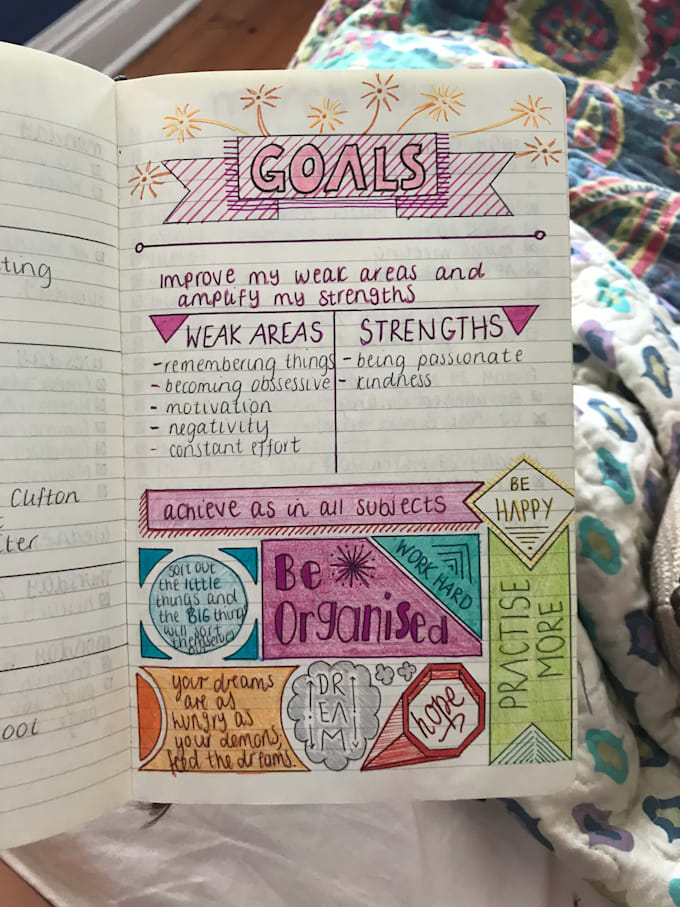 GOALS
Improve my weak areas and
amplify my strengths
WEAK AREAS
- remembering things
- becoming obssessive
- motivation
- negativity
- constant effort
STRENGTHS
- being passionate
- kindness
achieve as in all subjects
BE
HAPPY
sort out
the little
things and
the BIG things
will sort
themselves
Be
Organised
WORK HARD
PRACTISE
MORE
your dreams
are as
hungry as
your demons,
feed the dreams.
DR
EA
M
hope
ting
Clifton
ool